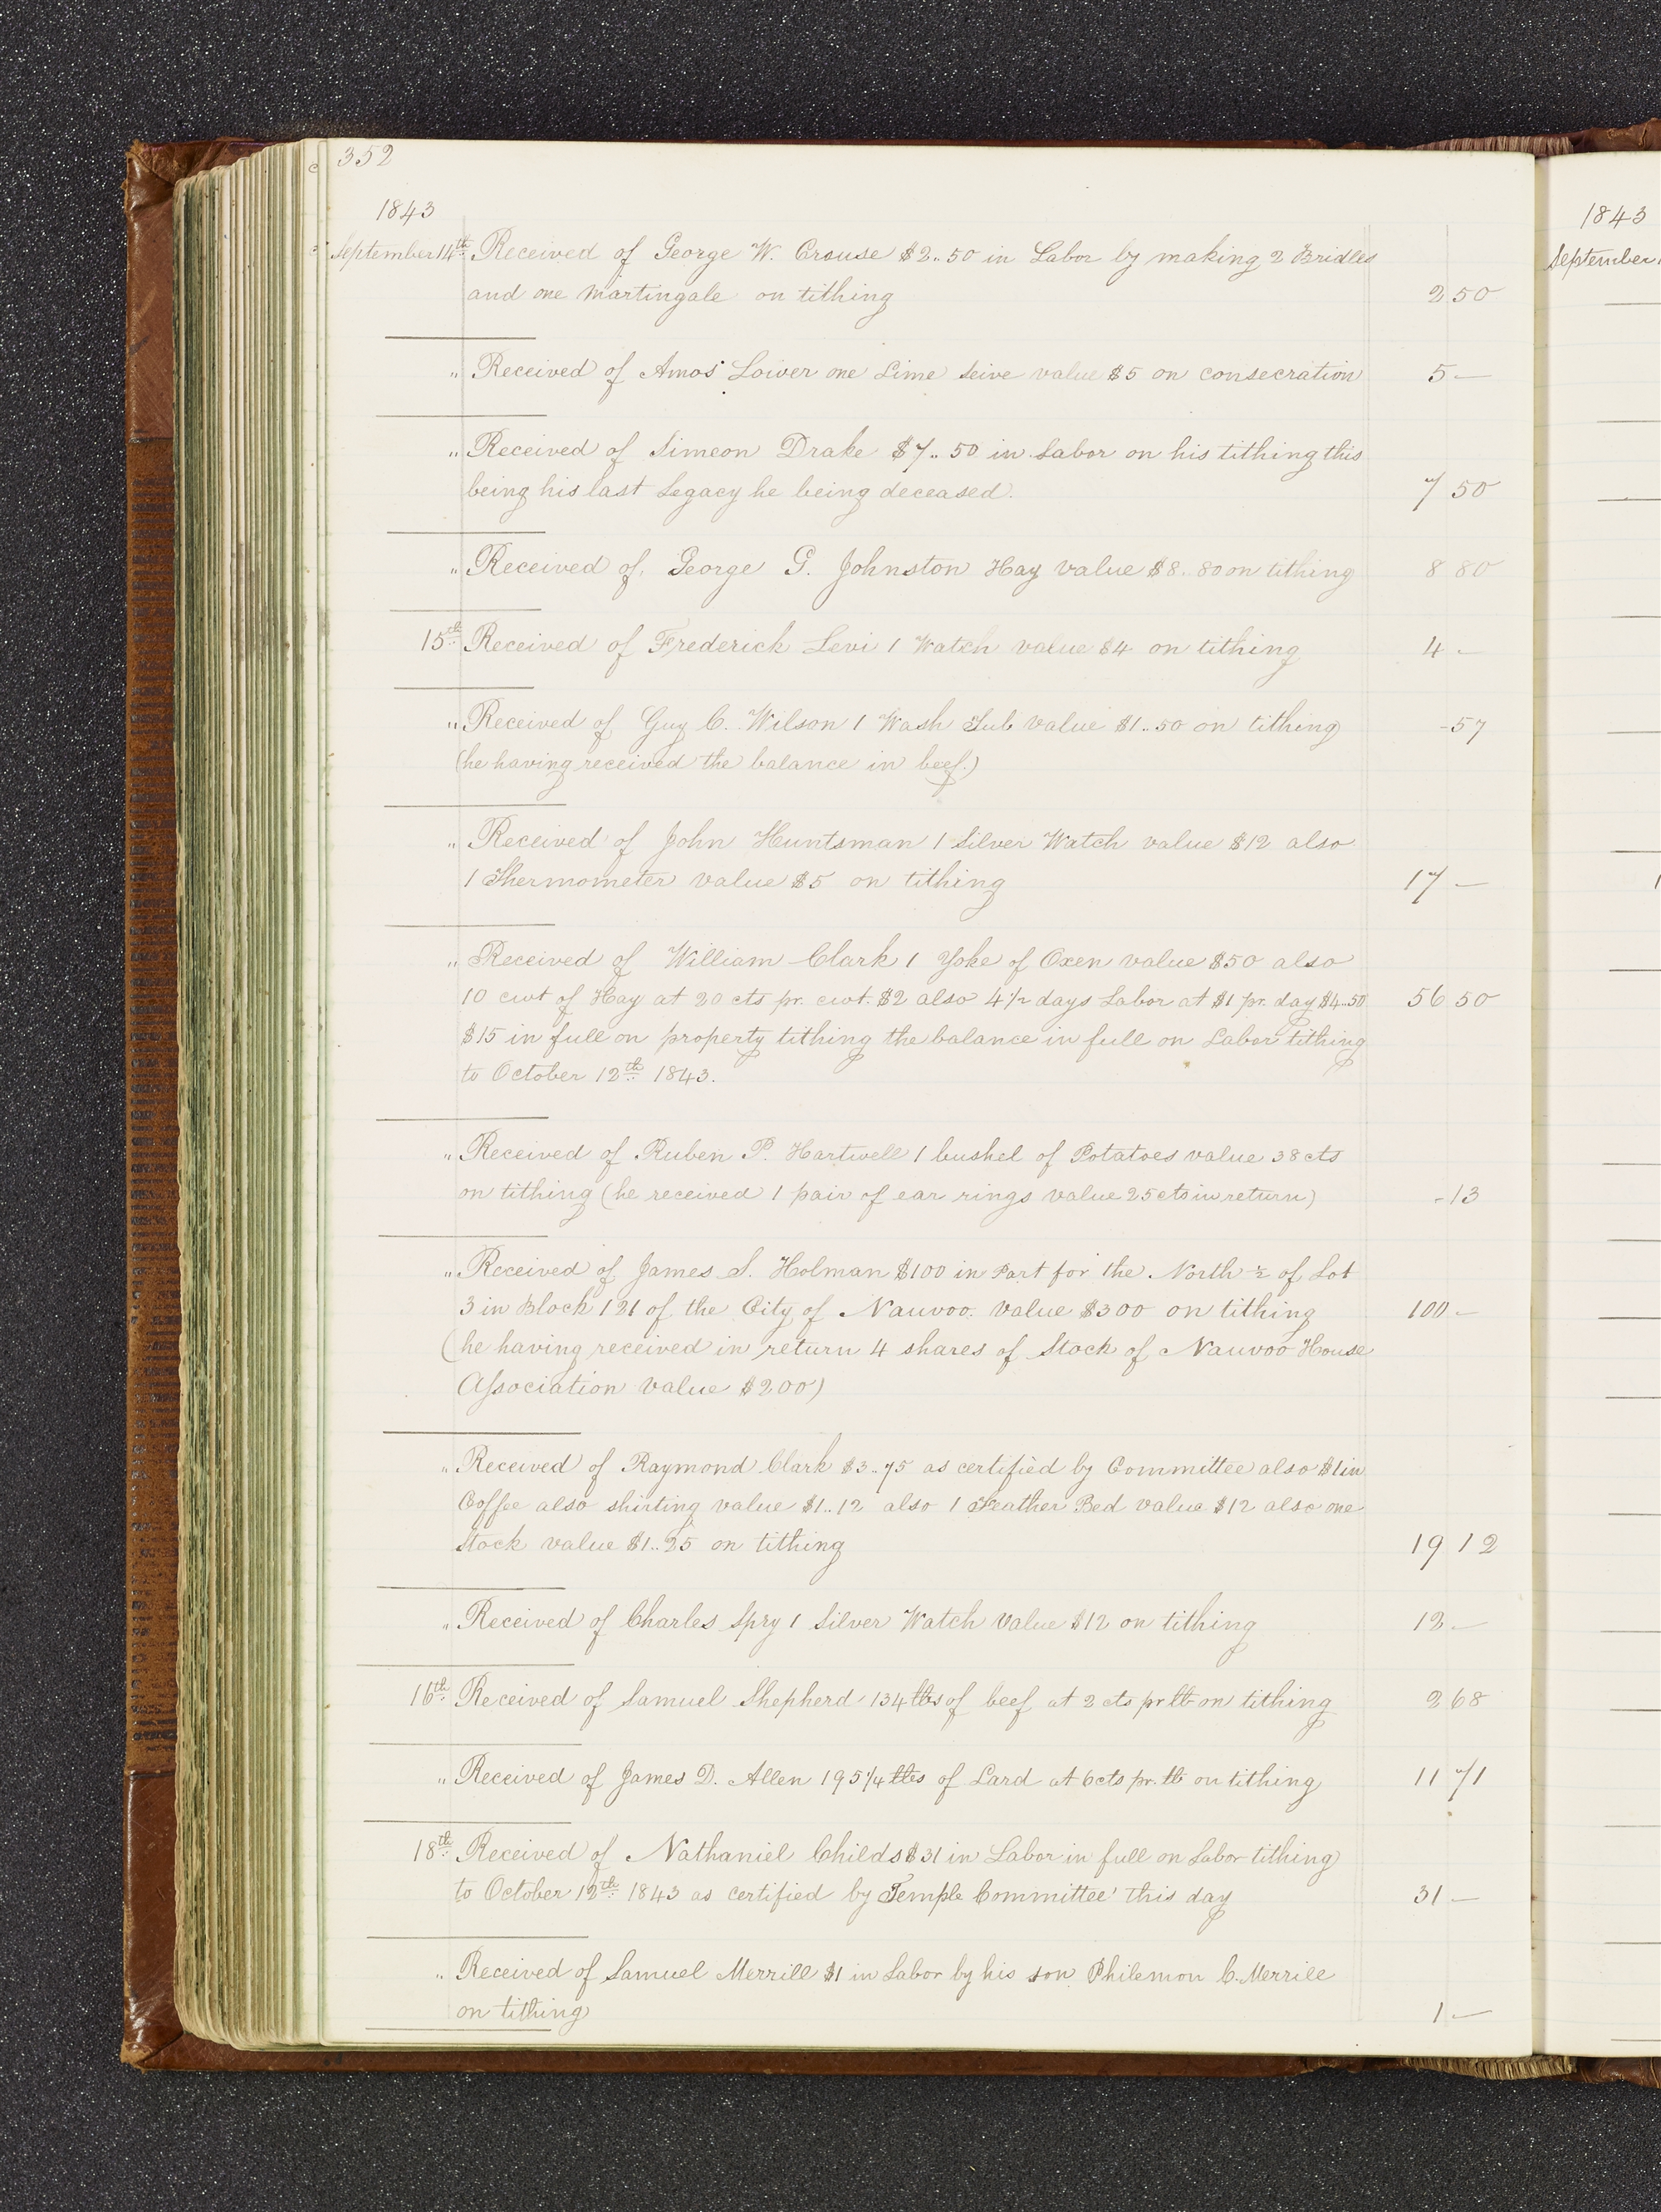 352
1843
September 14th Received of George W. Crouse $2..50 in Labor by making 2 Bridles
and one Martingale on tithing 2 50
" Received of Amos Lower one Lime Seive value $5 on consecration 5 —
" Received of Simeon Drake $7..50 in Labor on his tithing this
being his last Legacy he being deceased. 7 50
" Received of George G. Johnston Hay value $8..80 on tithing 8 80
15th Received of Frederick Levi 1 Watch value $4 on tithing 4 -
" Received of Guy C. Wilson 1 Wash Tub value $1..50 on tithing - 57
(he having received the balance in beef.)
" Received of John Huntsman 1 Silver Watch value $12 also
1 Thermometer value $5 on tithing 17 —
" Received of William Clark 1 Yoke of Oxen value $50 also
10 cwt of Hay at 20 cts pr. cwt. $2 also 4 1/2 days Labor at $1 pr. day $4..50 56 50
$15 in full on property tithing the balance in full on Labor tithing
to October 12th 1843.
" Received of Ruben P. Hartwell 1 bushel of Potatoes value 38 cts
on tithing (he received 1 pair of ear rings value 25 cts in return) - 13
" Received of James S. Holman $100 in Part for the North 1/2 of Lot
3 in Block 121 of the City of Nauvoo. value $300 on tithing 100 -
(he having received in return 4 shares of Stock of Nauvoo House
Association value $200)
" Received of Raymond Clark $3..75 as certified by Committee also $1 in
Coffee also shirting value $1..12 also 1 Feather Bed value $12 also one
Stock value $1..25 on tithing 19 12
" Received of Charles Spry 1 Silver Watch value $12 on tithing 12 -
16th Received of Samuel Shepherd 134 lbs of beef at 2 cts pr lb on tithing 2 68
" Received of James D. Allen 195 1/4 lbs of Lard at 6 cts pr. lb on tithing 11 71
18th Received of Nathaniel Childs $31 in Labor in full on Labor tithing
to October 12th 1843 as certified by Temple Committee this day 31 —
" Received of Samuel Merrill $1 in Labor by his son Philemon C. Merrill
on tithing 1 —
1843
September